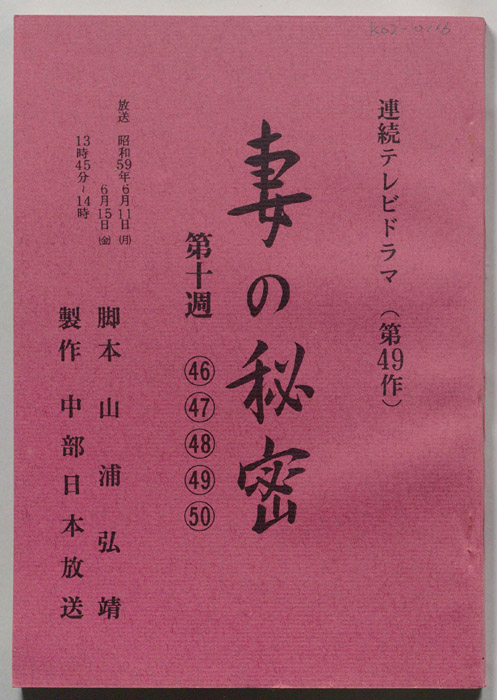 連続テレビドラマ（第49作）
妻の秘密
第十週 ㊻㊼㊽㊾㊿
放送 昭和59年6月11日㈪
6月15日㈮
13時45分~14時
脚本 山浦弘靖
製作 中部日本放送